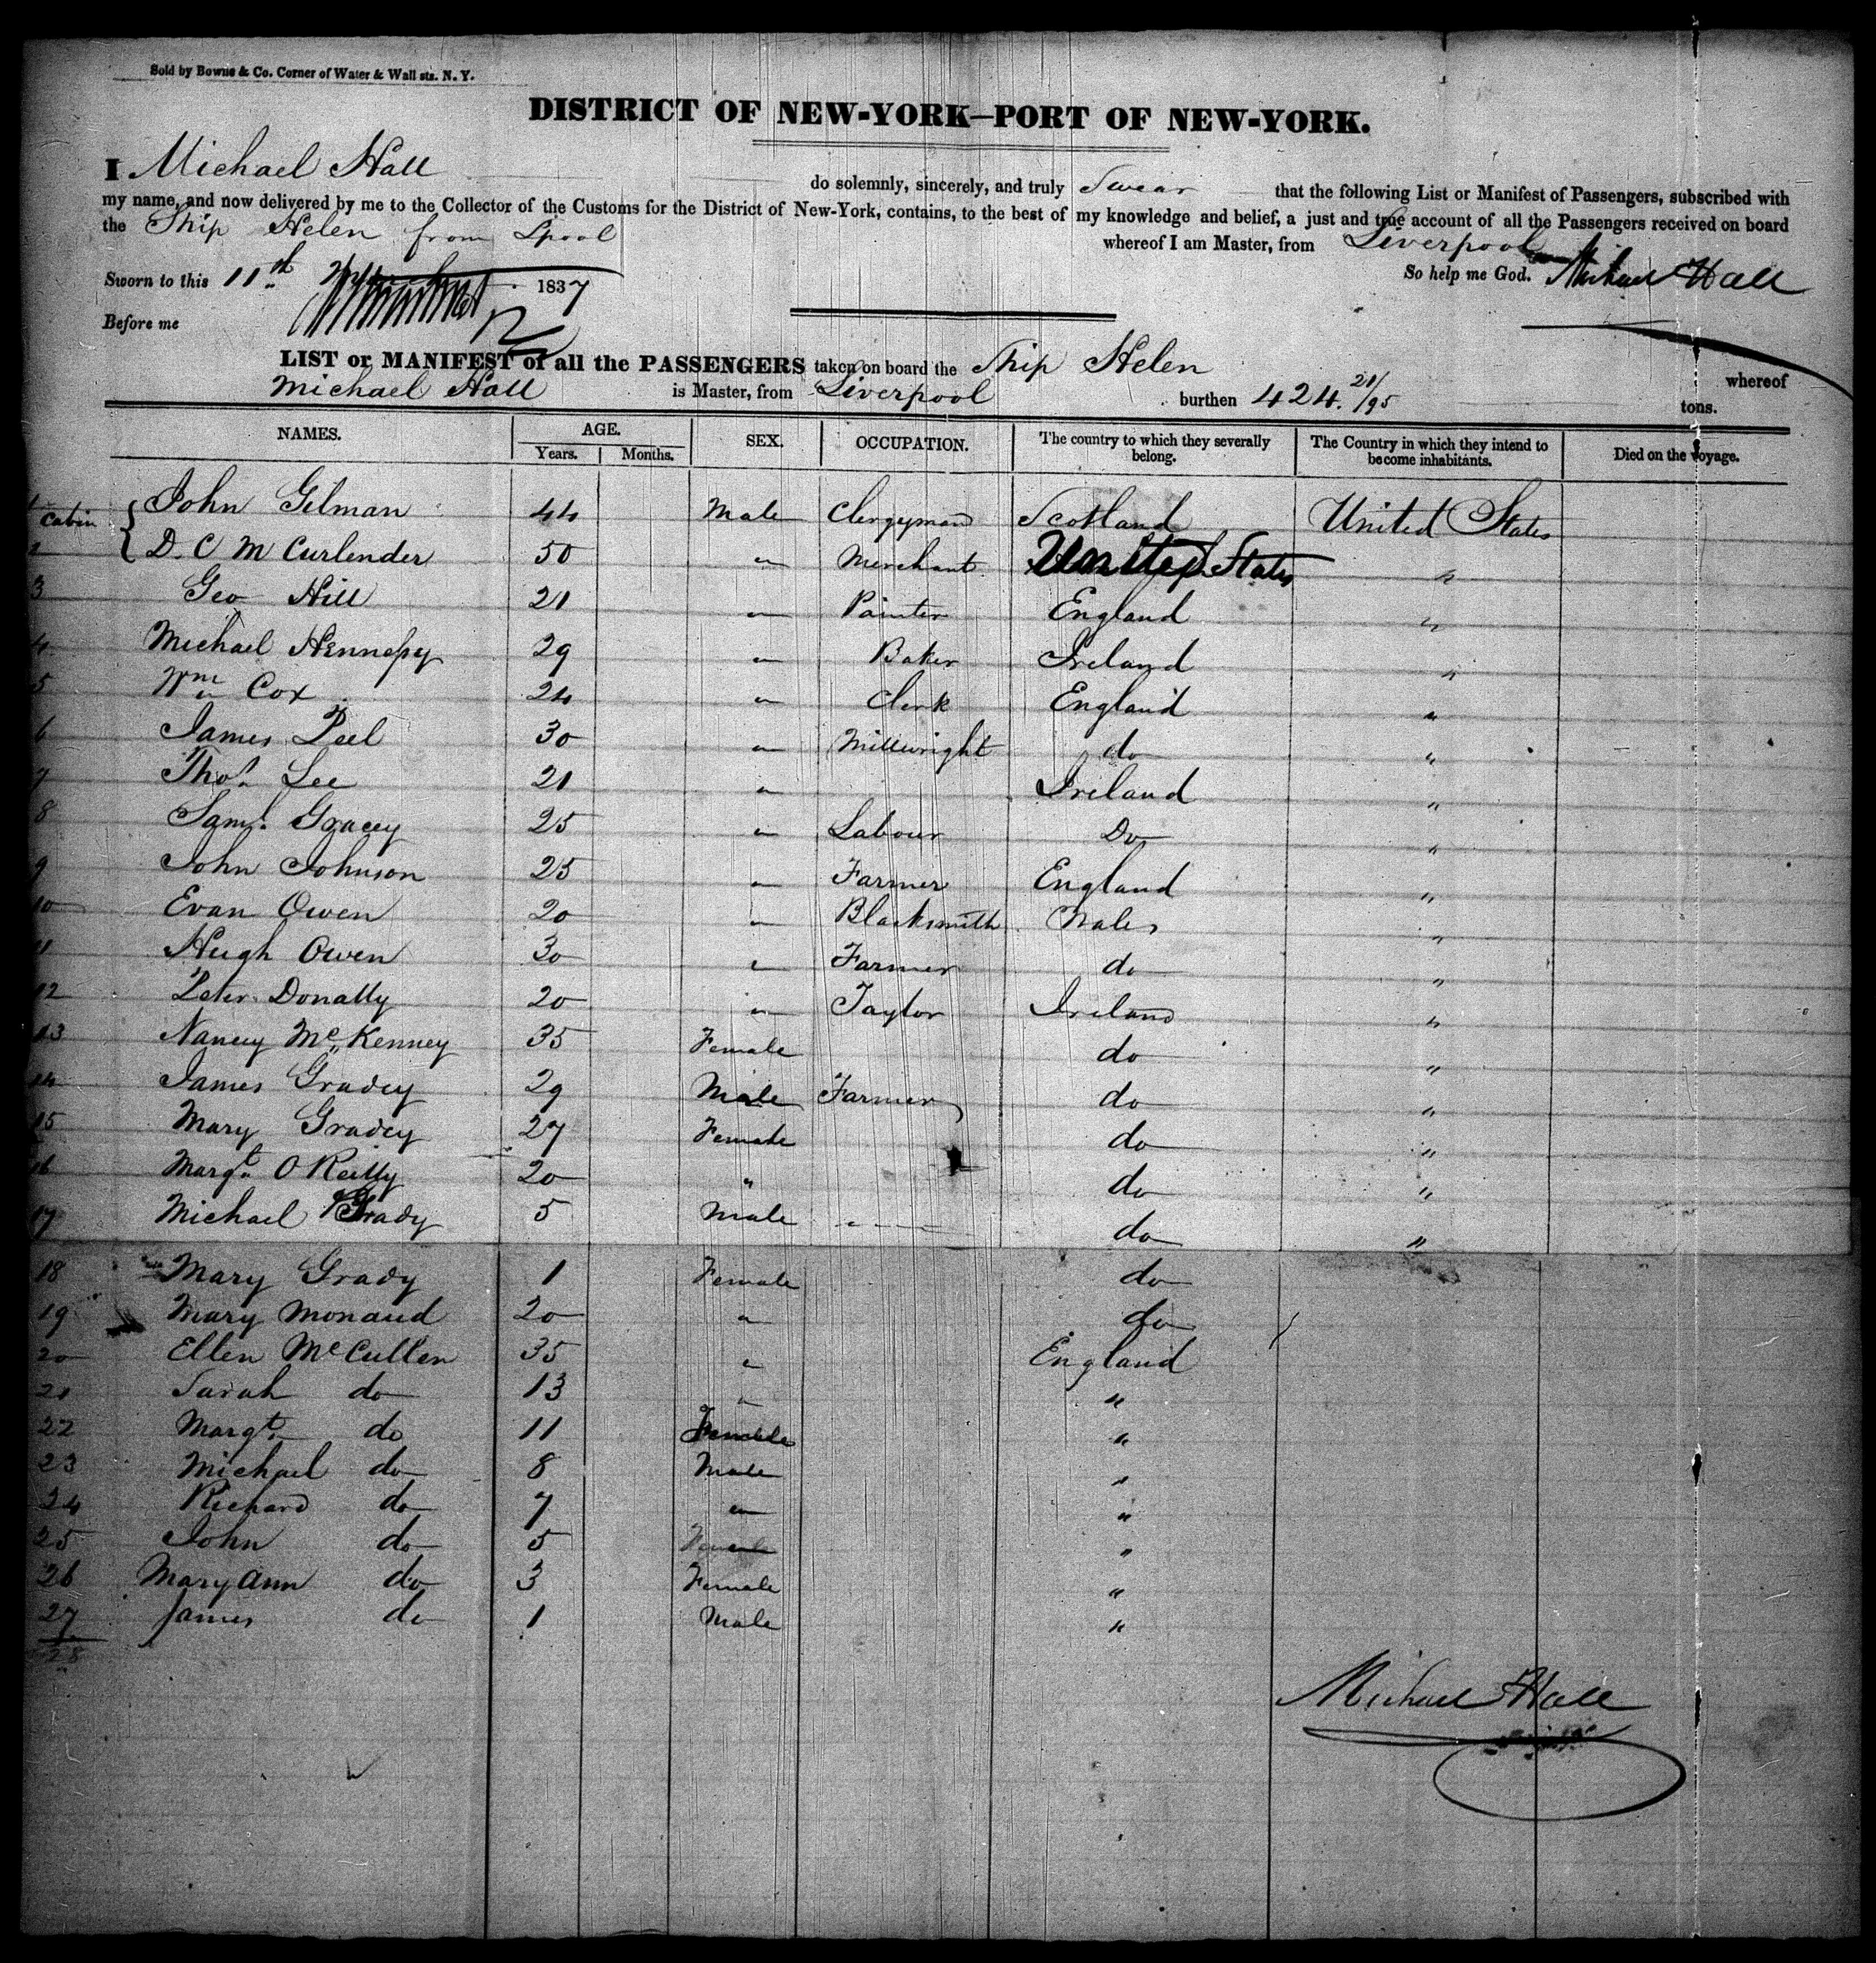 Sold by Bowne & Co. Corner of Water & Wall sts. N. Y.
DISTRICT OF NEW-YORK—PORT OF NEW-YORK.
I Michael Hall do solemnly, sincerely, and truly Swear that the following List or Manifest of Passengers, subscribed with
my name, and now delivered by me to the Collector of the Customs for the District of New-York, contains, to the best of my knowledge and belief, a just and true account of all the Passengers received on board
the Ship Helen from Lpool whereof I am Master, from Liverpool
Sworn to this 11th 1837 So help me God. Michael Hall
Before me
LIST or MANIFEST of all the PASSENGERS taken on board the Ship Helen whereof
Michael Hall is Master, from Liverpool burthen 424. 21/95 tons.
NAMES. AGE. SEX. OCCUPATION. The country to which they severally belong. The Country in which they intend to become inhabitants. Died on the voyage.
Years. Months.
1 Cabin John Gilman 44 Male Clergyman Scotland United States
2 D. C M Curlender 50 " Merchant United States "
3 Geo Hill 21 " Painter England "
4 Michael Hennesy 29 " Baker Ireland "
5 Wm Cox 24 " Clerk England "
6 James Peel 30 " Millwright do "
7 Thos. Lee 21 " Ireland "
8 Saml. Gracey 25 " Labour Do "
9 John Johnson 25 " Farmer England "
10 Evan Owen 20 " Blacksmith Wales "
11 Hugh Owen 30 " Farmer do "
12 Peter Donally 20 " Taylor Ireland "
13 Nancy Mc Kenney 35 Female do "
14 James Gradey 29 Male Farmer do "
15 Mary Gradey 27 Female do "
16 Margt. O Reilly 20 " do "
17 Michael Grady 5 Male do "
18 Mary Grady 1 Female do
19 Mary Monaud 20 " do
20 Ellen McCullen 35 " England
21 Sarah do 13 " "
22 Margt. do 11 Female "
23 Michael do 8 Male "
24 Richard do 7 " "
25 John do 5 "
26 Mary Ann do 3 Female "
27 James do 1 Male "
28
Michael Hall